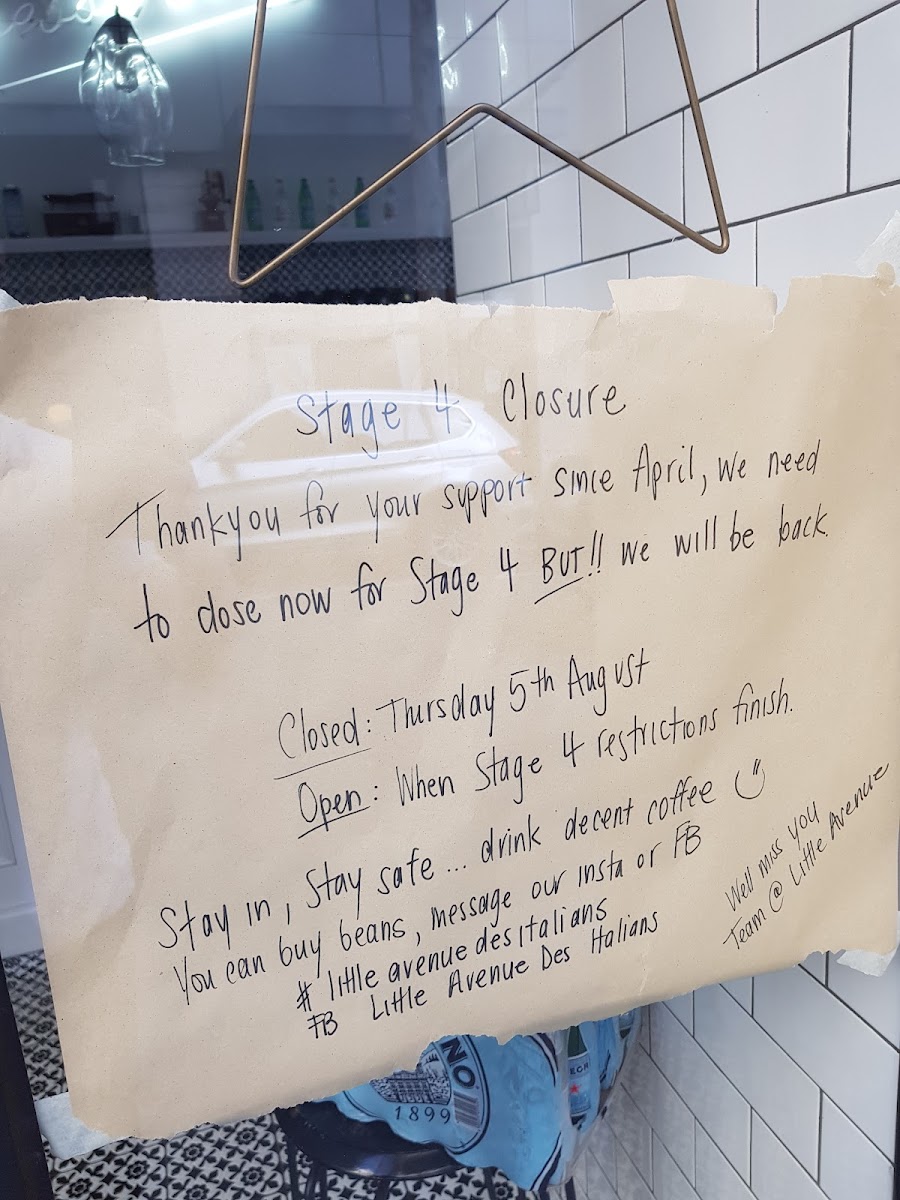 Stage 4 Closure
Thankyou for your support since April, we need
to close now for Stage 4 BUT!! we will be back.
Closed: Thursday 5th August
Open: When Stage 4 restrictions finish.
Stay in, Stay safe... drink decent coffee
You can buy beans, message our insta or FB
# little avenue des italians
FB Little Avenue Des Italians
Well miss you
Team @ Little Avenue
NO
1899